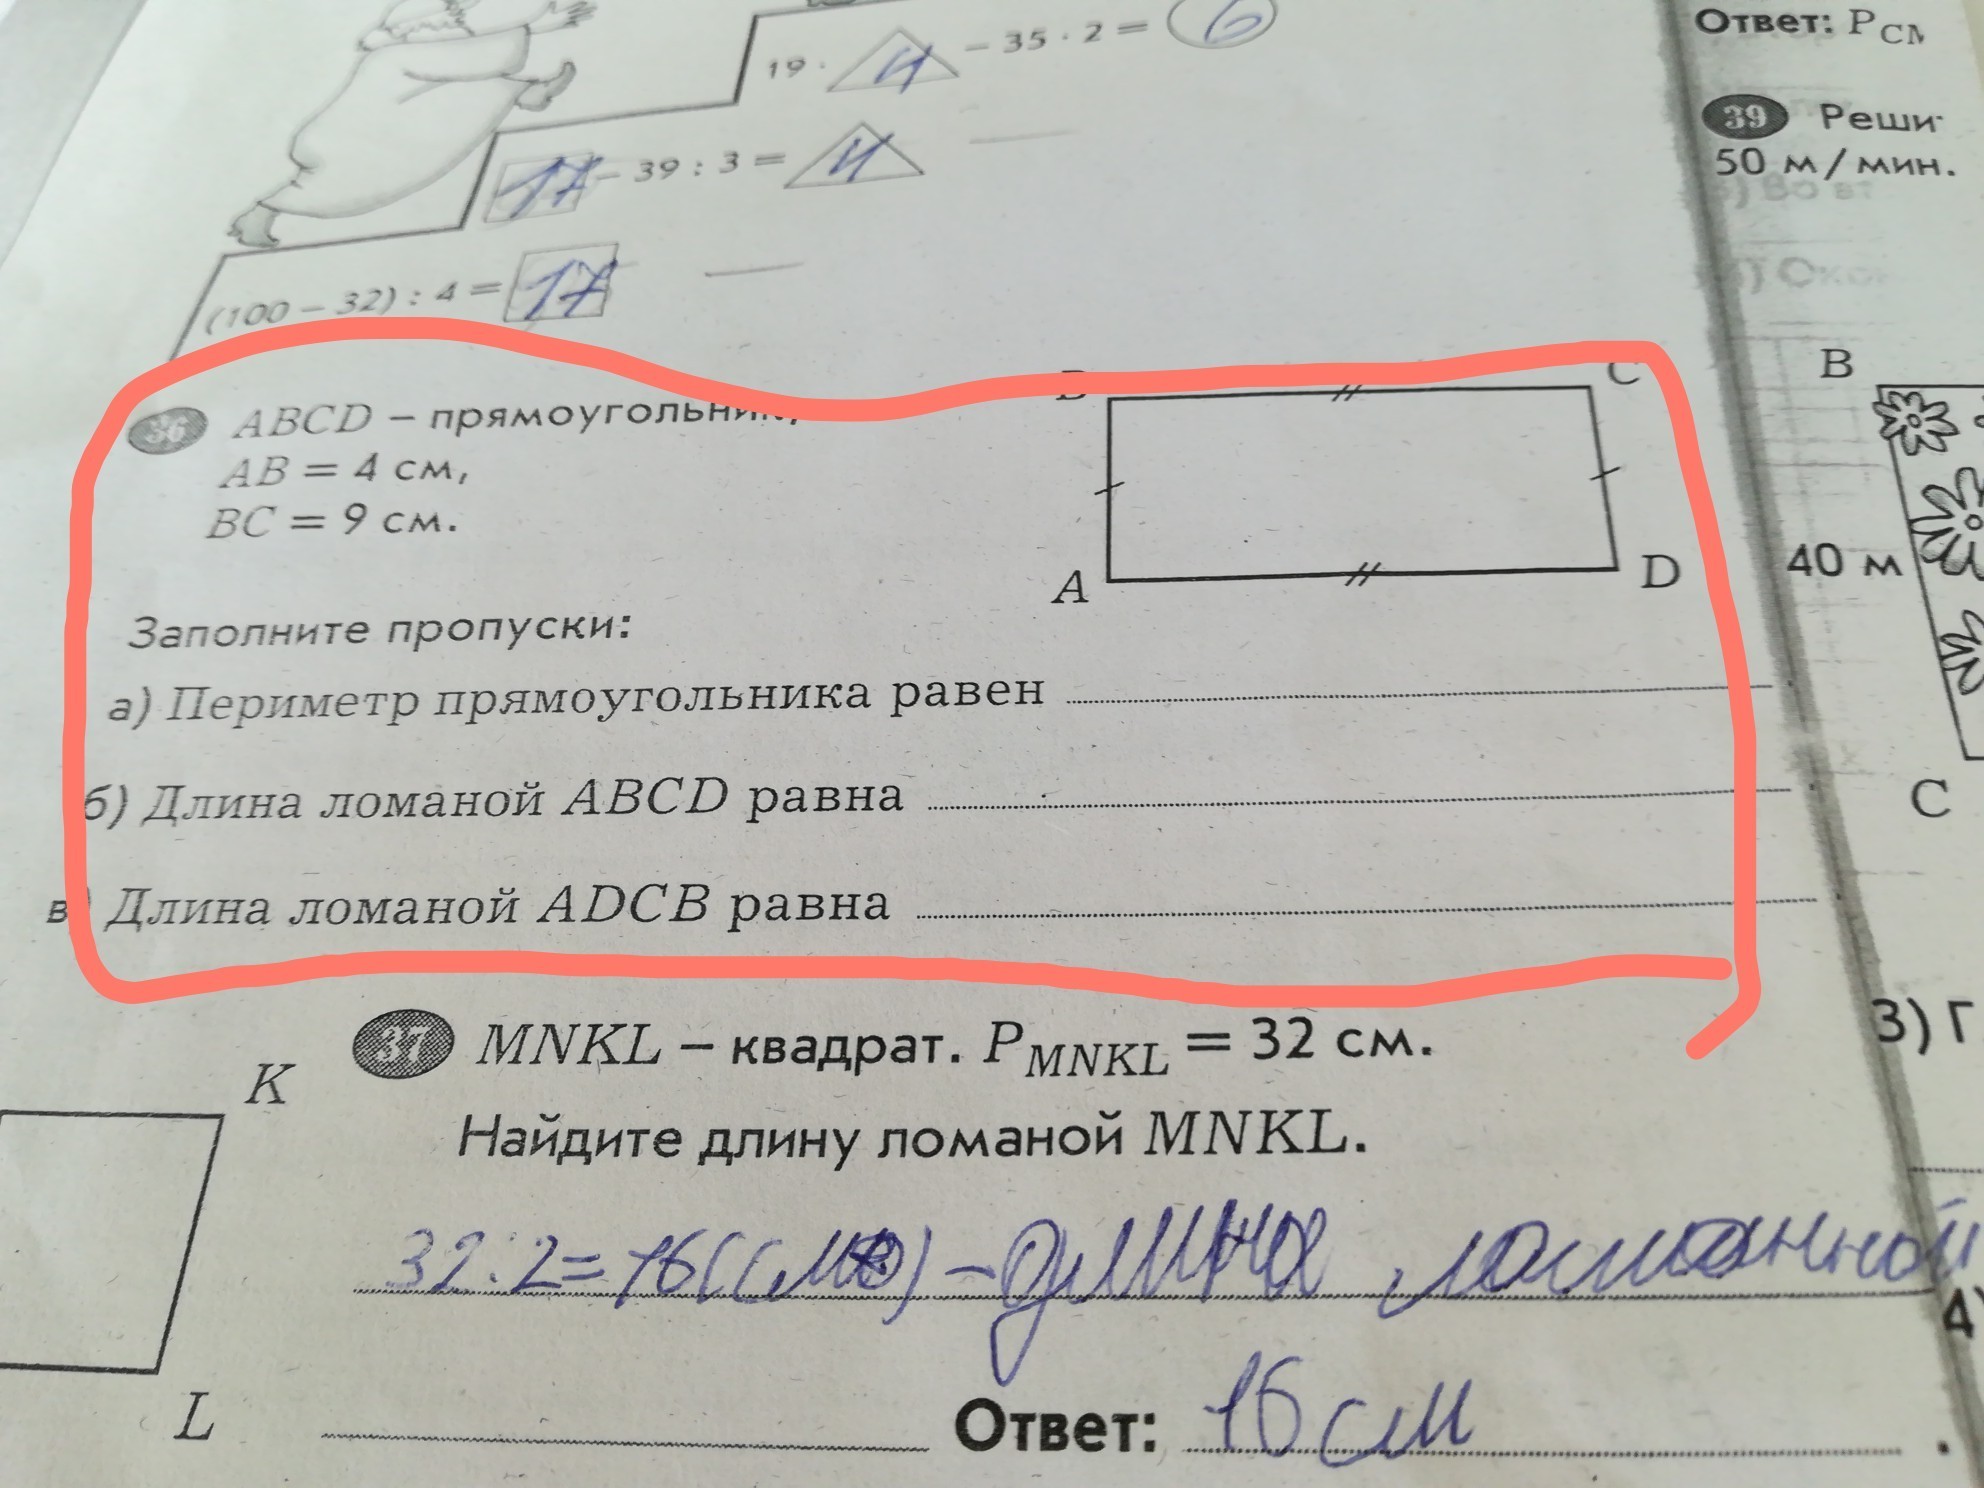 19 · 4 – 35 · 2 = 6
17 – 39 : 3 = 4
(100 – 32) : 4 = 17
36 ABCD – прямоугольник,
AB = 4 см,
BC = 9 см.
B
C
A
D
Заполните пропуски:
а) Периметр прямоугольника равен
б) Длина ломаной ABCD равна
в) Длина ломаной ADCB равна
37 MNKL – квадрат. PMNKL = 32 см.
Найдите длину ломаной MNKL.
K
L
32:2=16(см) – длина ломанной
Ответ: 16 см .
Ответ: P
39
50 м/мин.
B
40 м
C
3) Г
4)